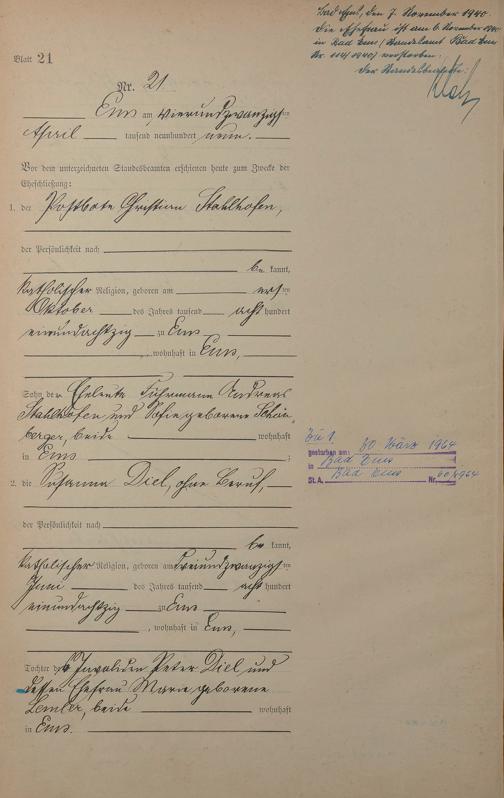 Bad Ems, den 7. November 1940.
Die Ehefrau ist am 6. November 1940
in Bad Ems (Standesamt Bad Ems
Nr. 114/1940) verstorben.
Der Standesbeamte:
Blatt 21
Nr. 21
Ems am vierundzwanzigsten
April tausend neunhundert neun.
Vor dem unterzeichneten Standesbeamten erschienen heute zum Zwecke der
Eheschließung:
1. der Postbote Christian Stahlhofen,
der Persönlichkeit nach
be kannt,
katholischer Religion, geboren am ersten
Oktober des Jahres tausend acht hundert
einundachtzig zu Ems
, wohnhaft in Ems,
Sohn der Eheleute Fuhrmann Andreas
Stahlhofen und Sofie geborene
berger, beide wohnhaft
in Ems ;
2. die Susanna Diel, ohne Beruf,
der Persönlichkeit nach
be kannt,
katholischer Religion, geboren am dreiundzwanzigsten
Juni des Jahres tausend acht hundert
einundachtzig zu Ems
, wohnhaft in Ems,
Tochter des Invaliden Peter Diel und
dessen Ehefrau Marie geborene
beide wohnhaft
in Ems.
Zu 1
gestorben am: 30 März 1964
in Bad Ems
St. A. Bad Ems Nr. 60/1964